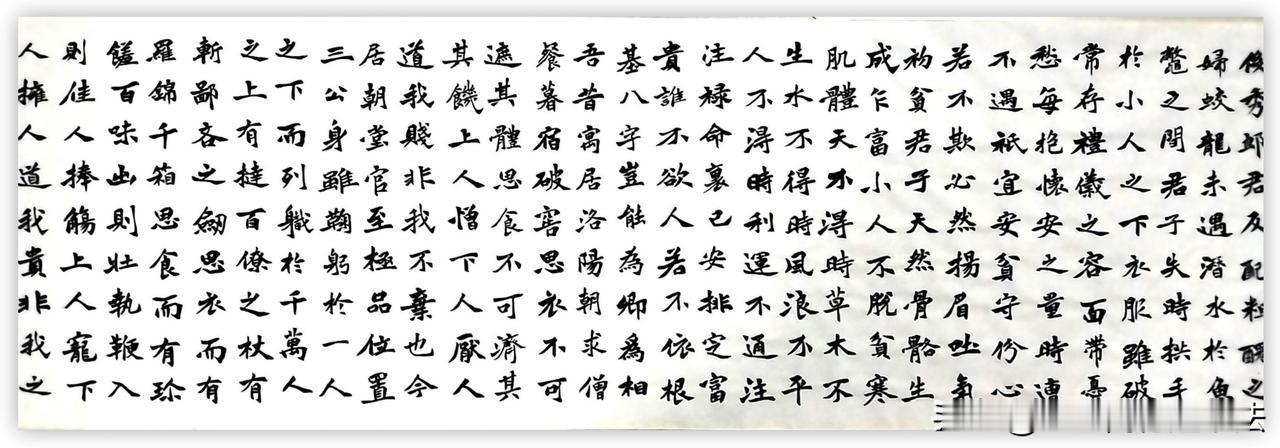 俊秀郎君反配粗醜之
婦蛟龍未遇潛水於魚
鱉之間君子失時拱手
於小人之下衣服雖破
常存禮儀之容面帶憂
愁每抱懷安之量時遭
不遇祇宜安貧守份心
若不欺必然揚眉吐氣
初貧君子天然骨骼生
成乍富小人不脫貧寒
肌體天不淂時草木不
生水不得時風浪不平
人不淂時利運不通注
注祿命裏已安排定富
貴誰不欲人若不依根
基八字豈能為卿爲相
吾昔寓居洛陽朝求僧
餐暮宿破窖思衣不可
遮其體思食不可濟其
其饑上人憎下人厭人
道我賤非我不棄也今
居朝堂官至極品位置
三公身雖鞠躬於一人
之下而列職於千萬人
之上有撻百僚之杖有
斬鄙吝之劒思衣而有
羅錦千箱思食而有珍
饈百味出則壯執鞭入
則佳人捧觴上人寵下
人擁人道我貴非我之